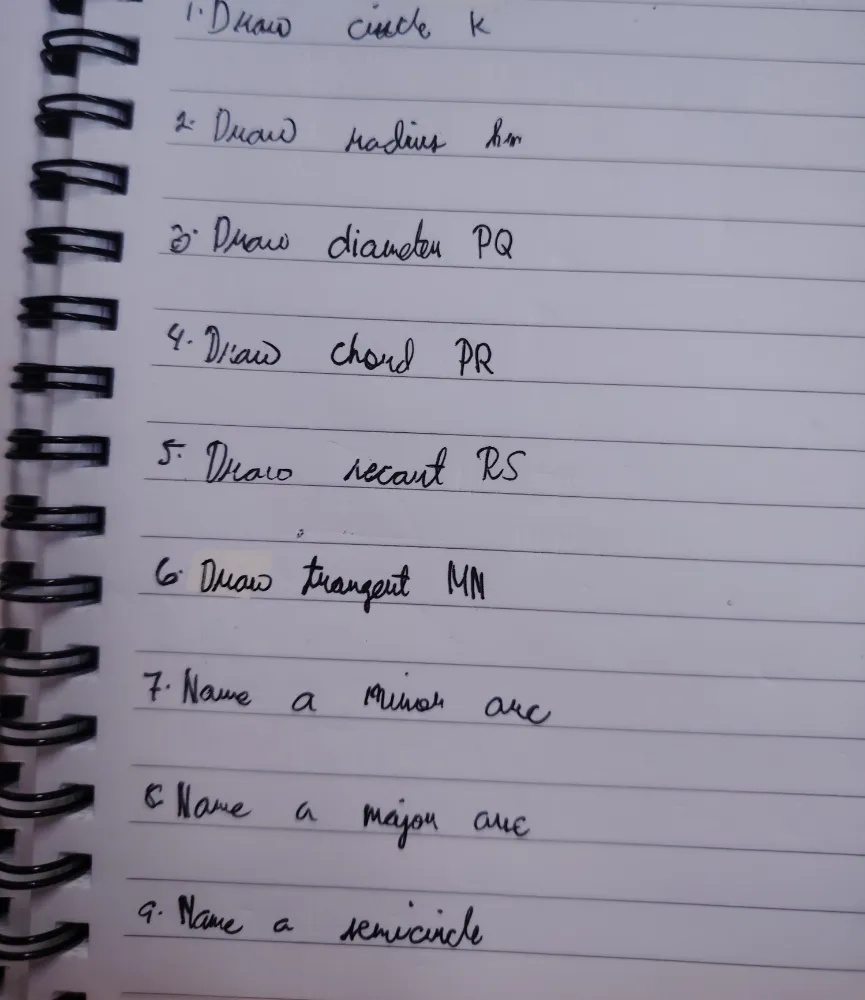 1. Draw circle K
2. Draw radius hm
3. Draw diameter PQ
4. Draw chord PR
5. Draw secant RS
6. Draw trangent MN
7. Name a minor arc
8 Name a major arc
9. Name a semicircle